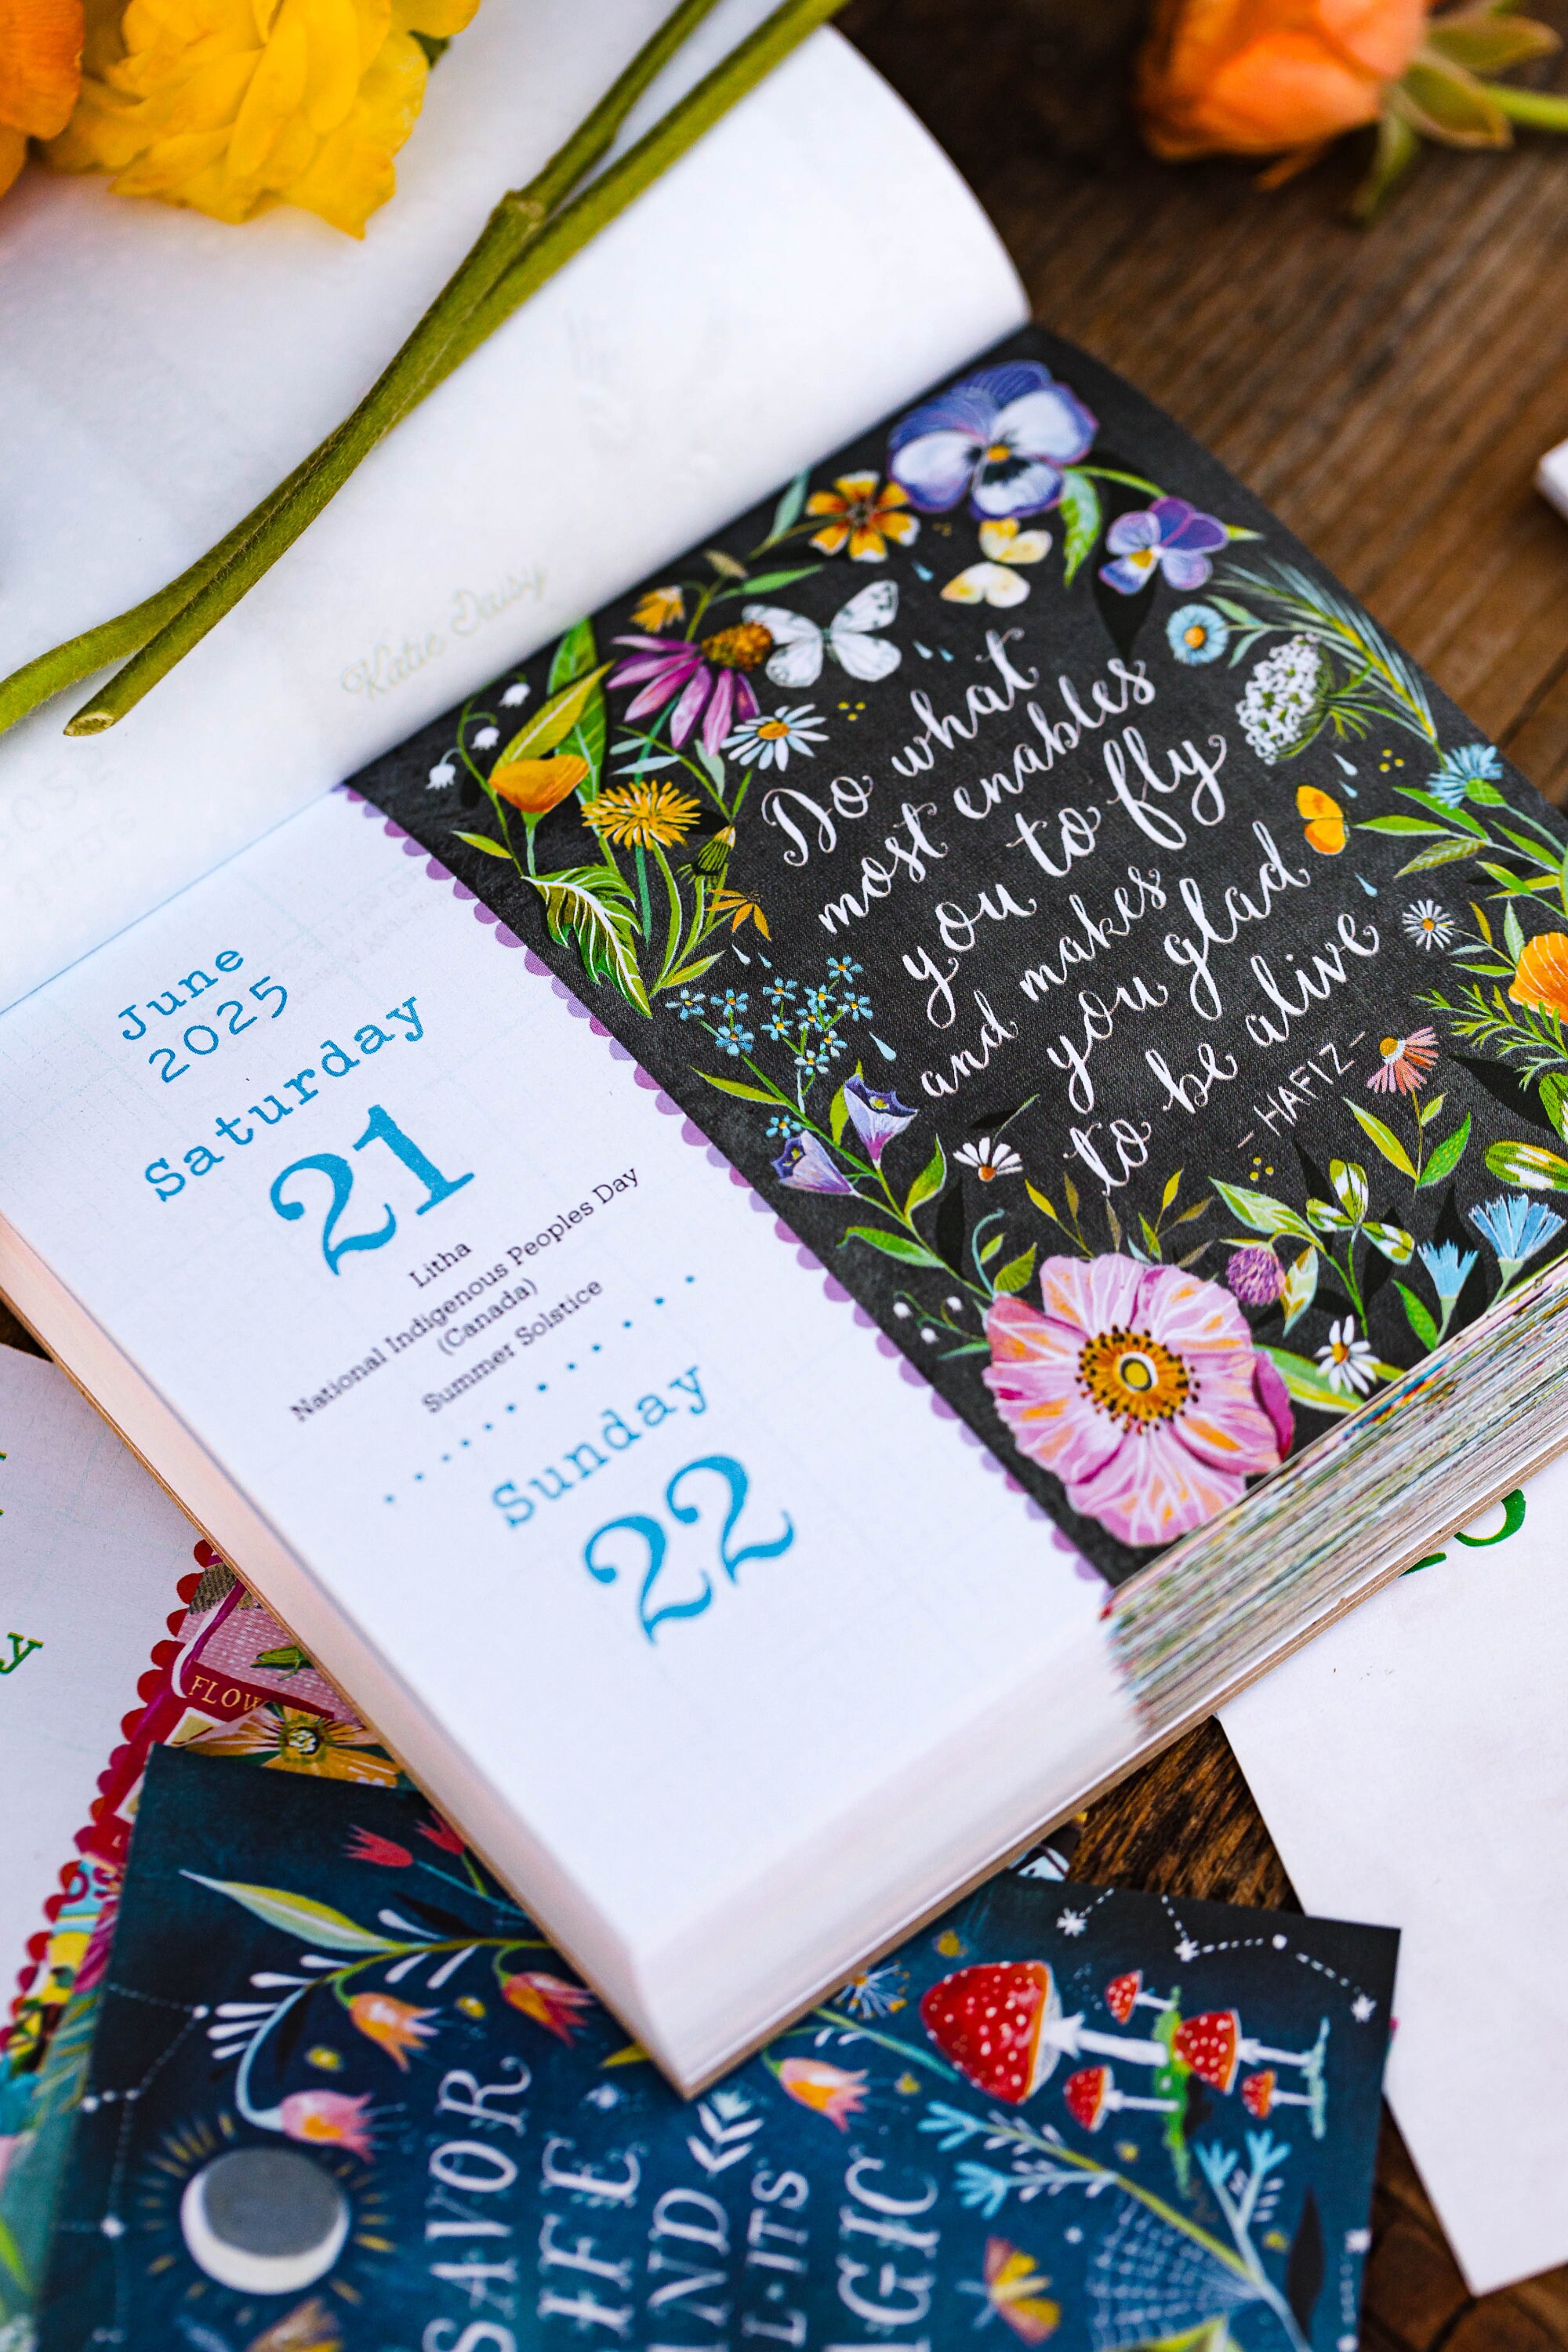 Katie Daisy
June
2025
Saturday
21
Litha
National Indigenous Peoples Day
(Canada)
Summer Solstice
Sunday
22
Do what
most enables
you to fly
and makes
you glad
to be alive
-HAFIZ-
FLOW
SAVOR